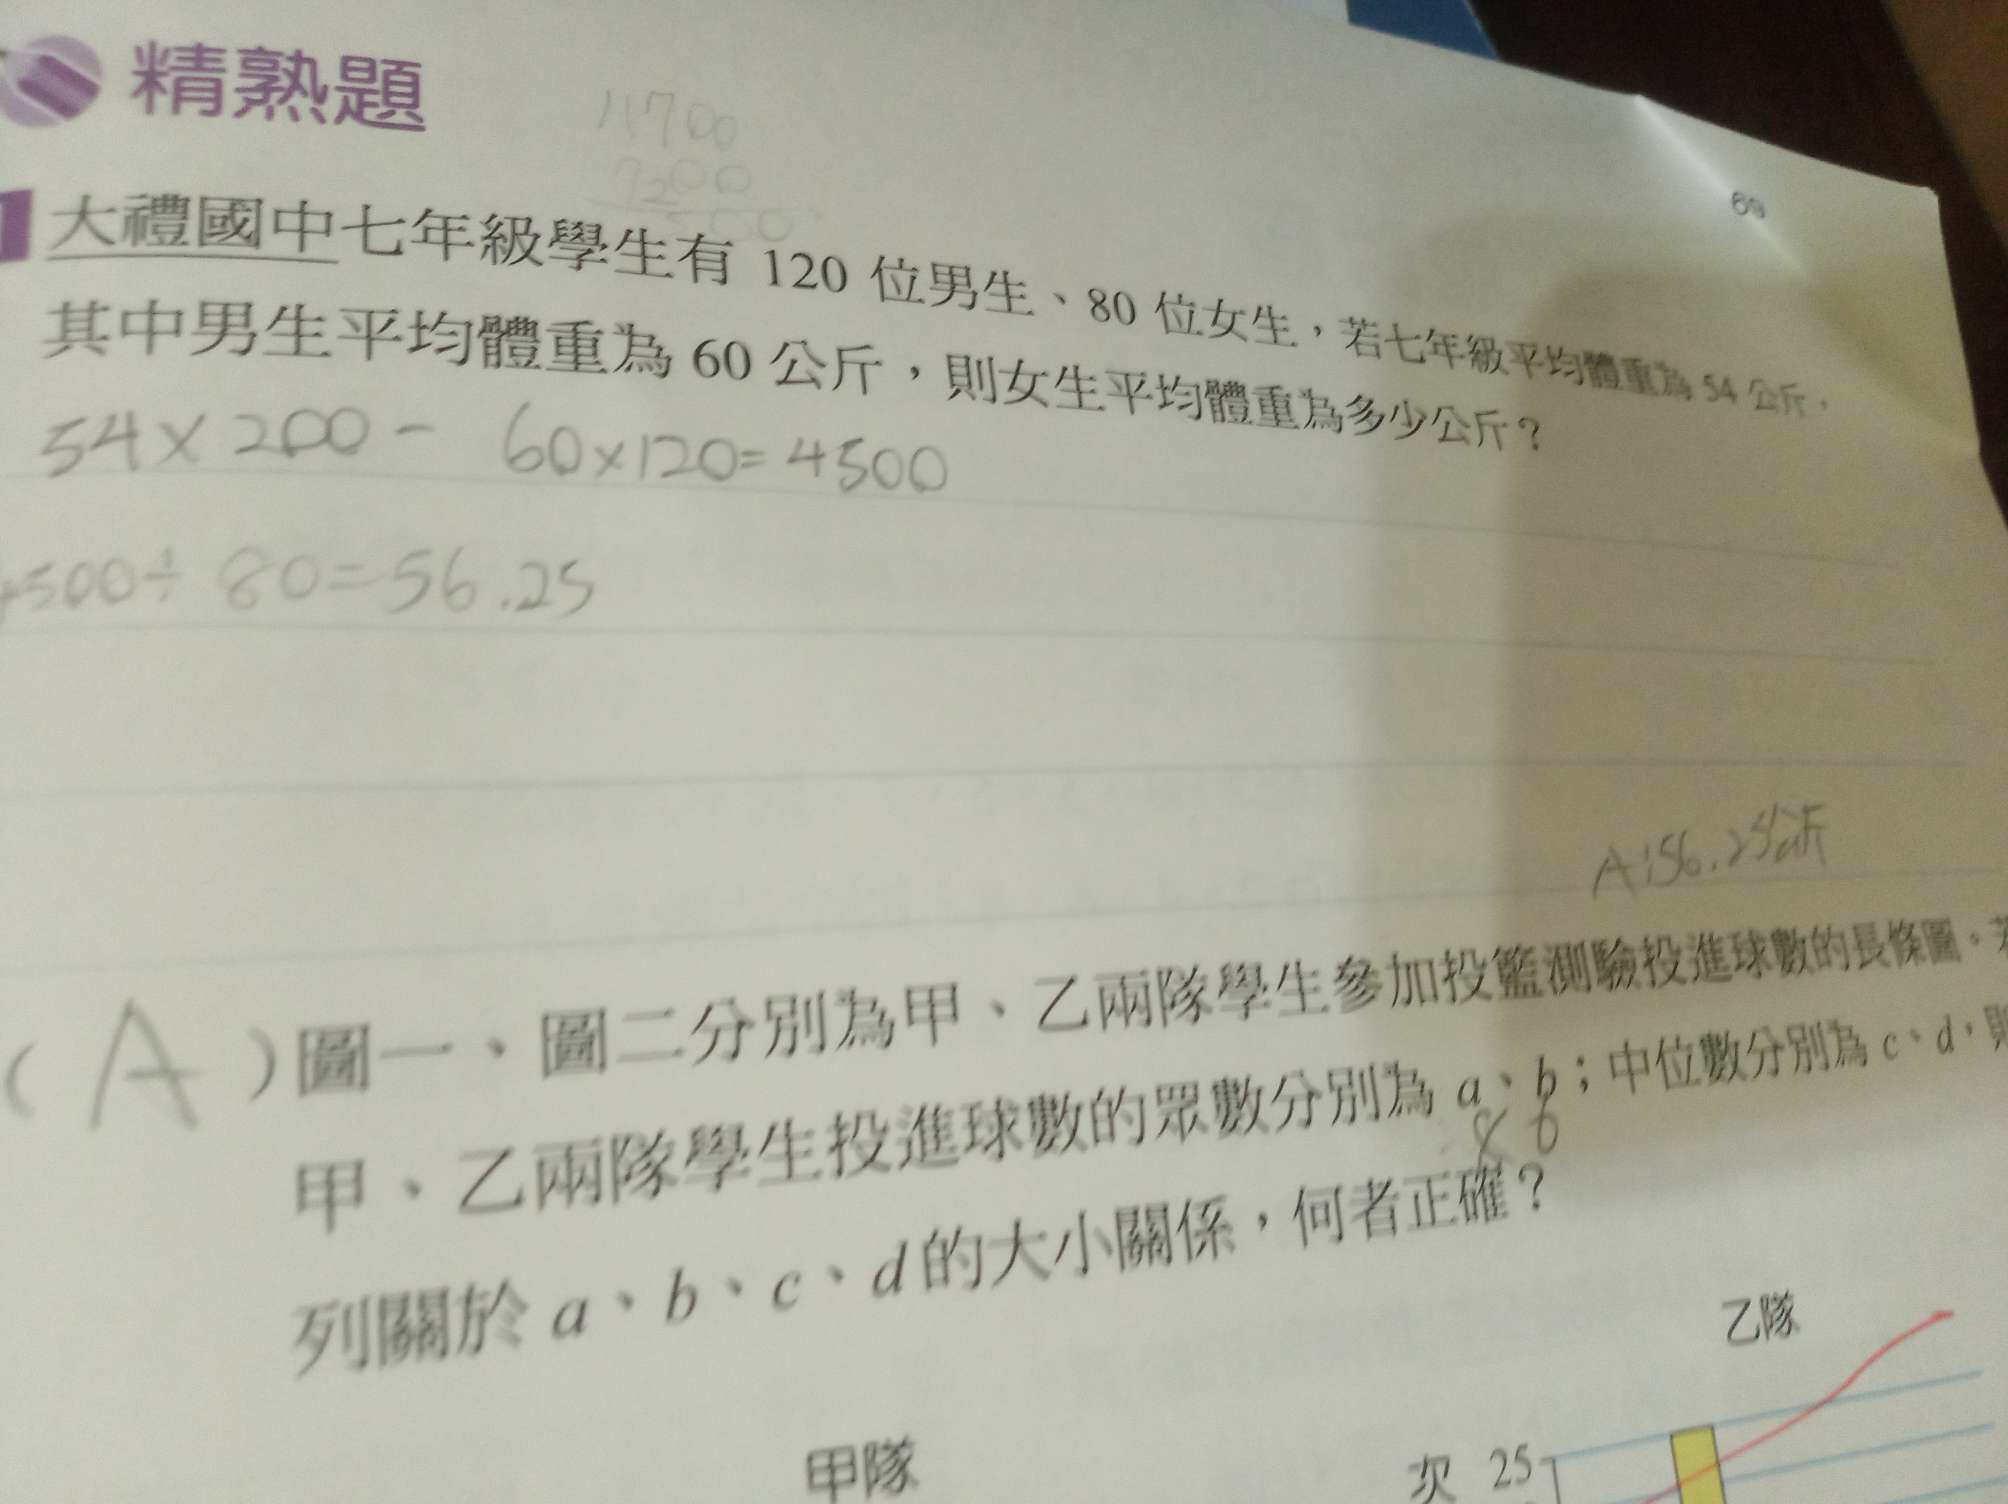 精熟題
11700
7200
69
1 大禮國中七年級學生有 120 位男生、80 位女生，若七年級平均體重為 54 公斤，
其中男生平均體重為 60 公斤，則女生平均體重為多少公斤？
54×200－ 60×120=4500
4500÷80=56.25
A:56.25公斤
( A )圖一、圖二分別為甲、乙兩隊學生參加投籃測驗投進球數的長條圖。若
甲、乙兩隊學生投進球數的眾數分別為 a、b；中位數分別為 c、d，則
8 6
列關於 a、b、c、d的大小關係，何者正確？
乙隊
甲隊
次 25